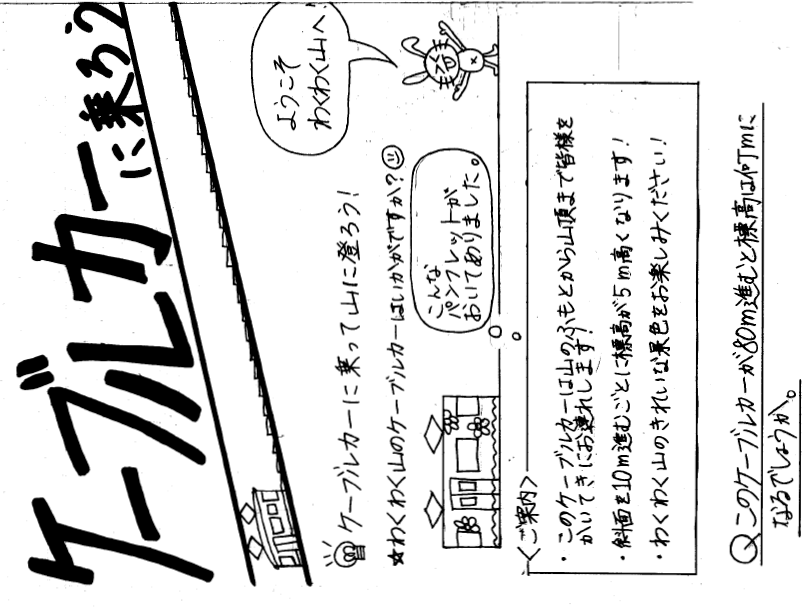 ケーブルカーに乗ろう
ようこそ
わくわく山へ
ケーブルカーに乗って山に登ろう!
☆わくわく山のケーブルカーはいかがですか?
こんな
パンフレットが
おいてありました。
<ご案内>
・このケーブルカーは山のふもとから山頂まで皆様を
かいてきにお連れします!
・斜面を10m進むごとに標高が5m高くなります!
・わくわく山のきれいな景色をお楽しみください!
Qこのケーブルカーが80m進むと標高は何mに
なるでしょうか。